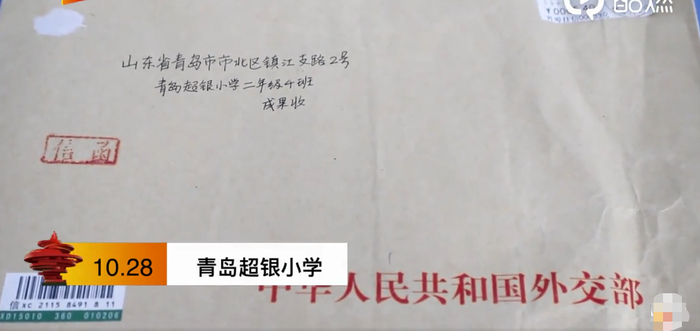 山东省青岛市市北区镇江支路2号
青岛超银小学二年级4班
成果收
信函
10.28
青岛超银小学
中华人民共和国外交部
信 XC 2115 8491 8 11
XD15010 360 010206